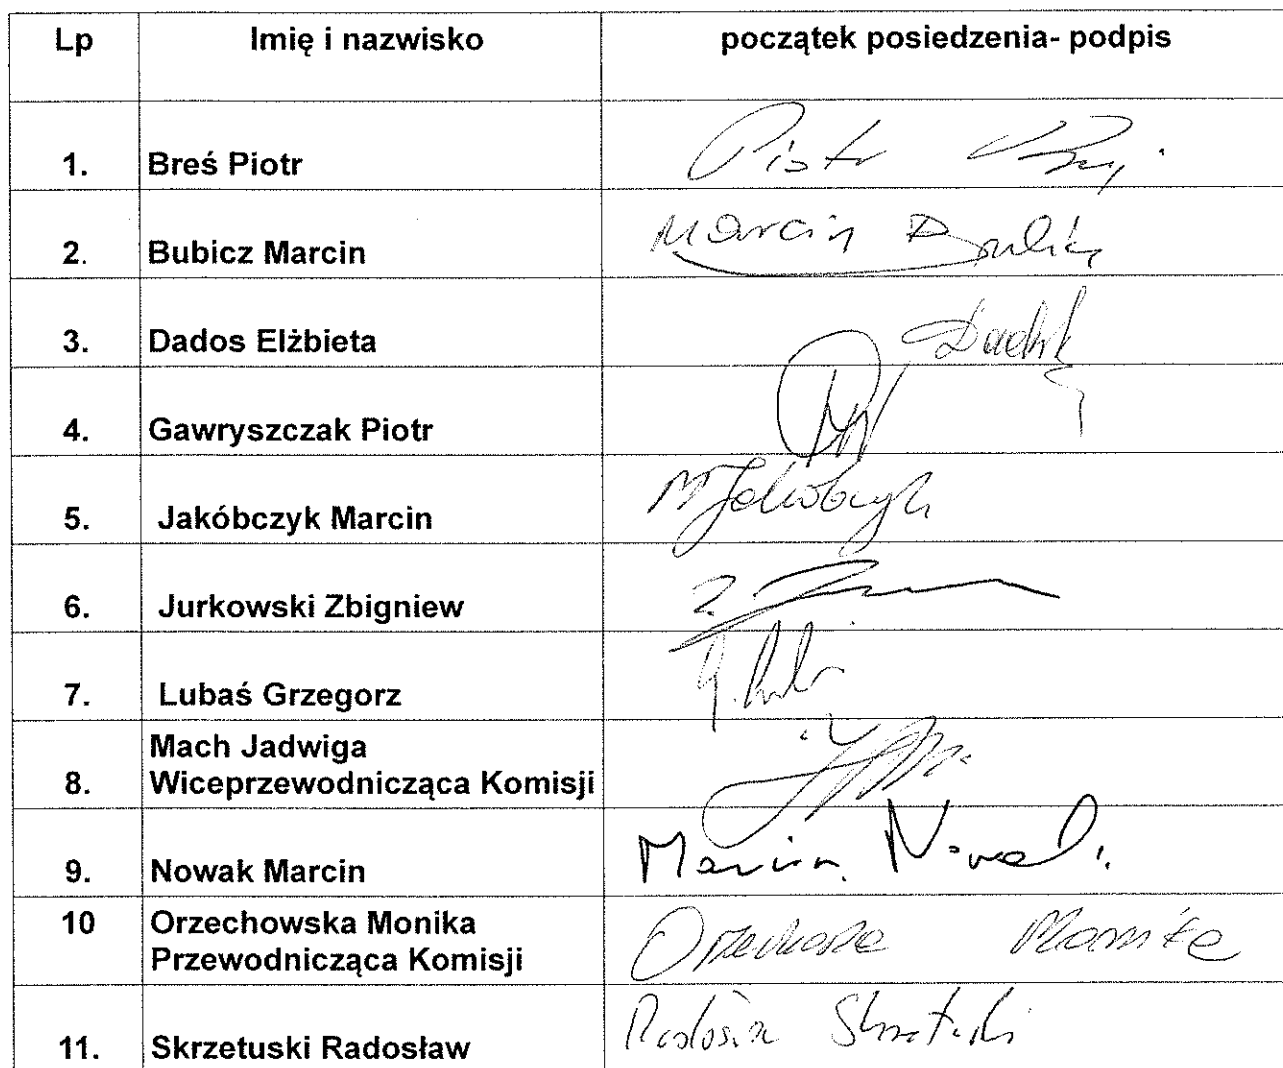 Lp Imię i nazwisko początek posiedzenia- podpis
1. Breś Piotr Piotr
2. Bubicz Marcin Marcin
3. Dados Elżbieta
4. Gawryszczak Piotr
5. Jakóbczyk Marcin M Jakóbczyk
6. Jurkowski Zbigniew Z.
7. Lubaś Grzegorz G.
Mach Jadwiga
8. Wiceprzewodnicząca Komisji
9. Nowak Marcin Marcin Nowak
10 Orzechowska Monika
Przewodnicząca Komisji Orzechowska Monika
11. Skrzetuski Radosław Radosław Skrzetuski